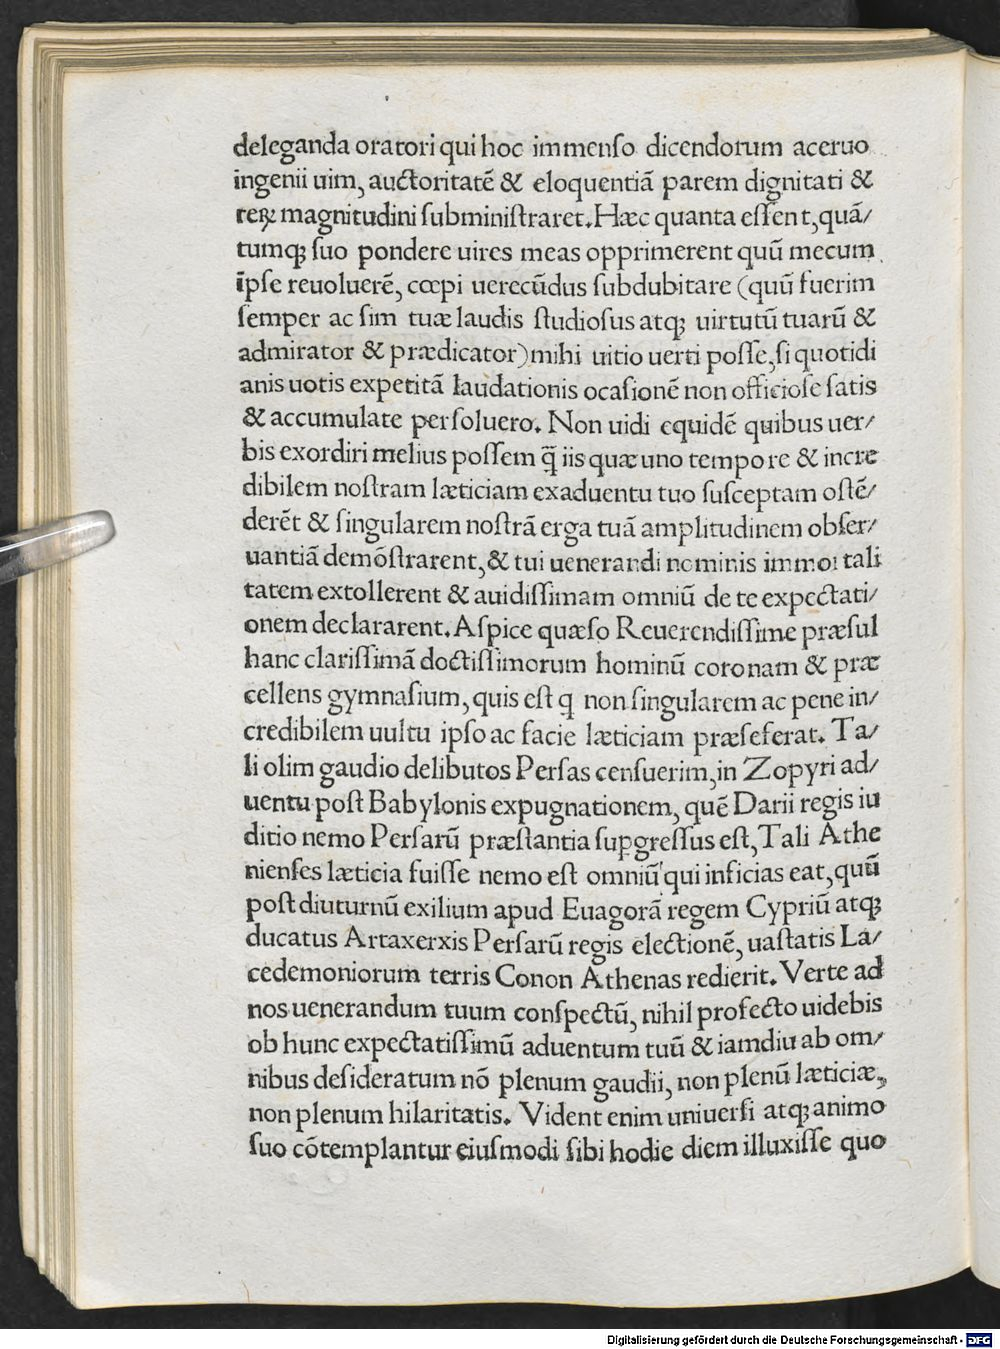 deleganda oratori qui hoc immenſo dicendorum aceruo
ingenii uim, auctoritatē & eloquentiā parem dignitati &
reꝝ magnitudini ſubminiſtraret. Hæc quanta eſſent, quā/
tumqꝫ ſuo pondere uires meas opprimerent quū mecum
īpſe reuoluerē, cœpi uerecūdus ſubdubitare (quū fuerim
ſemper ac ſim tuæ laudis ſtudioſus atqꝫ uirtutū tuarū &
admirator & prædicator) mihi uitio uerti poſſe, ſi quotidi
anis uotis expetitā laudationis ocaſionē non officioſe ſatis
& accumulate perſoluero. Non uidi equidē quibus uer/
bis exordiri melius poſſem q̄̄ iis quæ uno tempore & incre
dibilem noſtram læticiam ex aduentu tuo ſuſceptam oſtē/
derēt & ſingularem noſtrā erga tuā amplitudinem obſer/
uantiā demōſtrarent, & tui uenerandi nominis immortali
tatem extollerent & auidiſſimam omniū de te expectati/
onem declararent. Aſpice quæſo Reuerendiſſime præſul
hanc clariſſimā doctiſſimorum hominū coronam & præ
cellens gymnaſium, quis eſt q non ſingularem ac pene in/
credibilem uultu ipſo ac facie læticiam præſeferat. Ta/
li olim gaudio delibutos Perſas cenſuerim, in Zopyri ad/
uentu poſt Babylonis expugnationem, quē Darii regis iu
ditio nemo Perſarū præſtantia ſuꝑgreſſus eſt, Tali Athe
nienſes læticia fuiſſe nemo eſt omniū qui inficias eat, quū
poſt diuturnū exilium apud Euagorā regem Cypriū atqꝫ
ducatus Artaxerxis Perſarū regis electionē, uaſtatis La/
cedemoniorum terris Conon Athenas redierit. Verte ad
nos uenerandum tuum conſpectū, nihil profecto uidebis
ob hunc expectatiſſimū aduentum tuū & iamdiu ab om/
nibus deſideratum nō plenum gaudii, non plenū læticiæ,
non plenum hilaritatis. Vident enim uniuerſi atqꝫ animo
ſuo cōtemplantur eiuſmodi ſibi hodie diem illuxiſſe quo
Digitalisierung gefördert durch die Deutsche Forschungsgemeinschaft - DFG